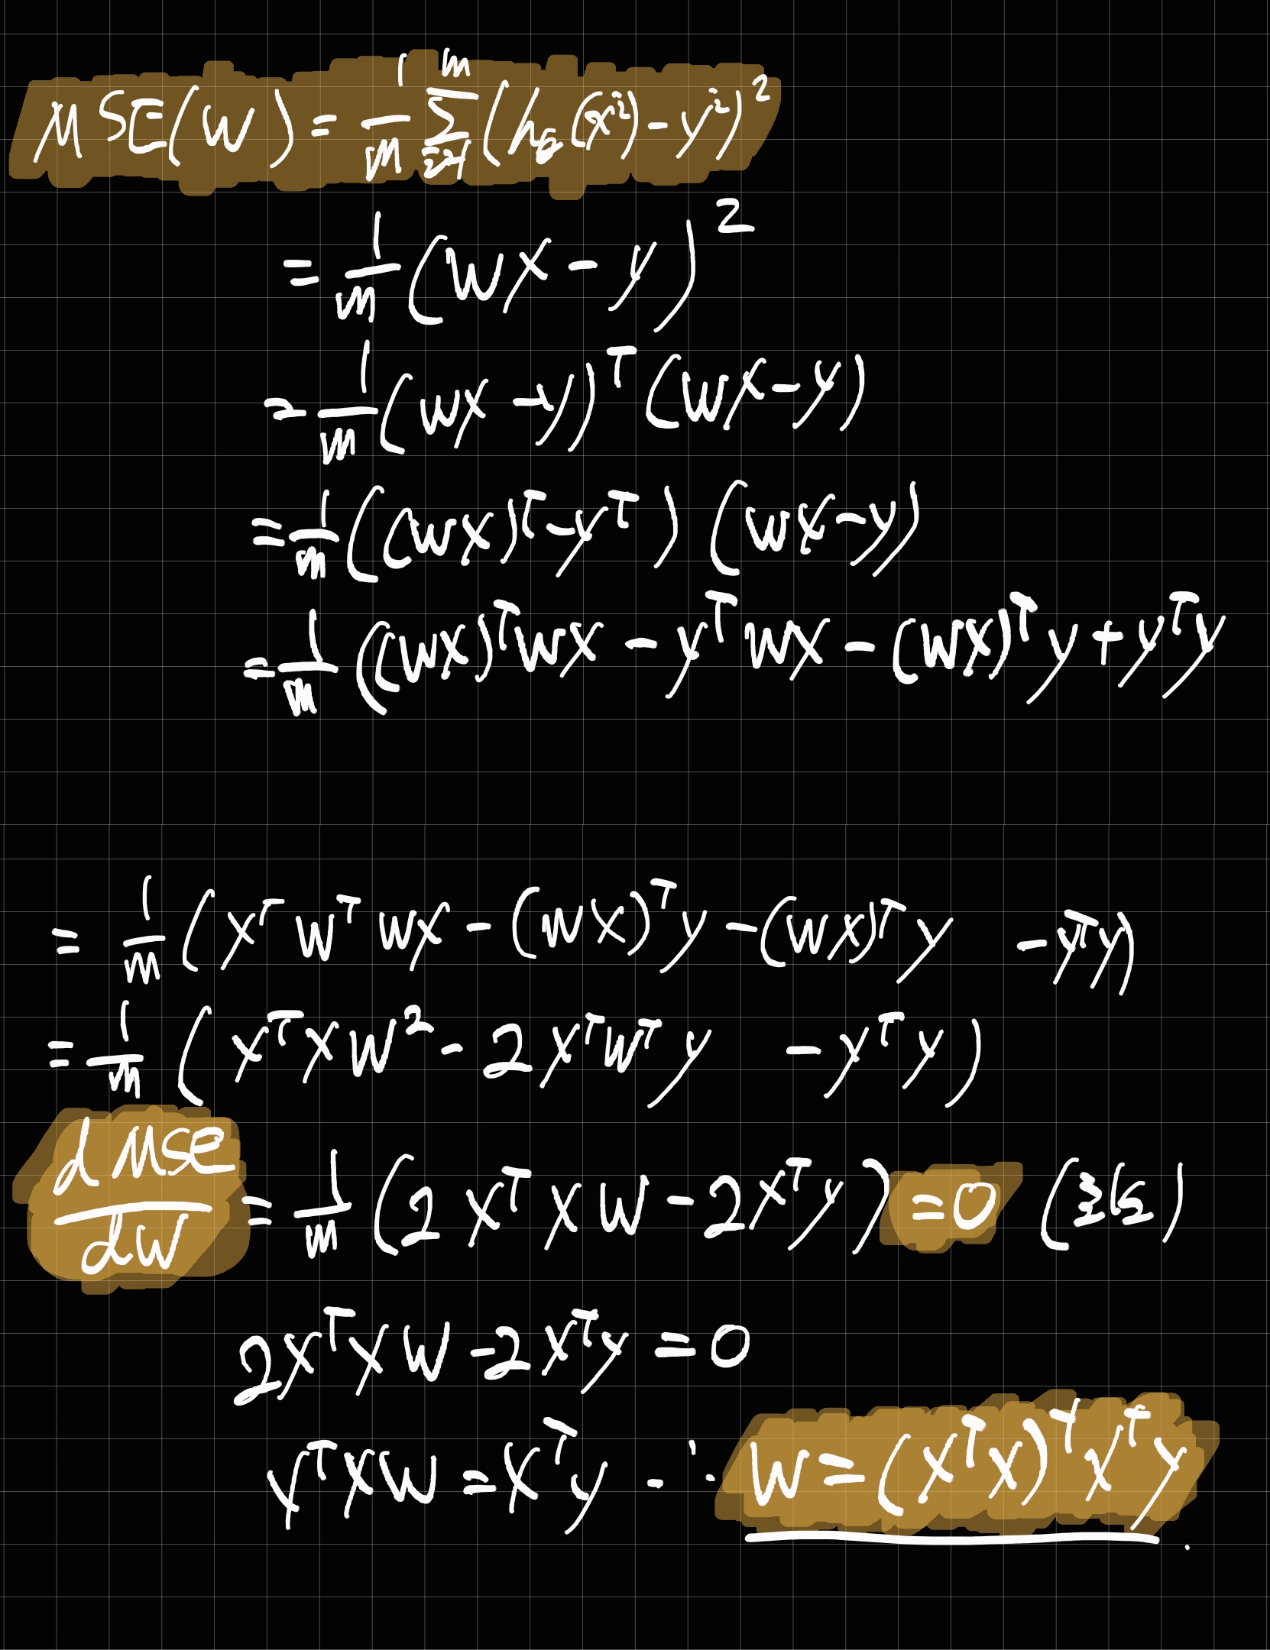 MSE(W) = 1/m Σ_{i=1}^{m} (h_θ(x^i) - y^i)^2
= 1/m (WX - y)^2
= 1/m (WX - y)^T (WX - y)
= 1/m ((WX)^T - y^T) (WX - y)
= 1/m ((WX)^T WX - y^T WX - (WX)^T y + y^T y
= 1/m (X^T W^T WX - (WX)^T y - (WX)^T y - y^T y)
= 1/m (X^T X W^2 - 2 X^T W^T y - y^T y)
dMSE/dW = 1/m (2 X^T X W - 2 X^T y) = 0
2 X^T X W - 2 X^T y = 0
X^T X W = X^T y - ∴ W = (X^T X)^T X^T y.